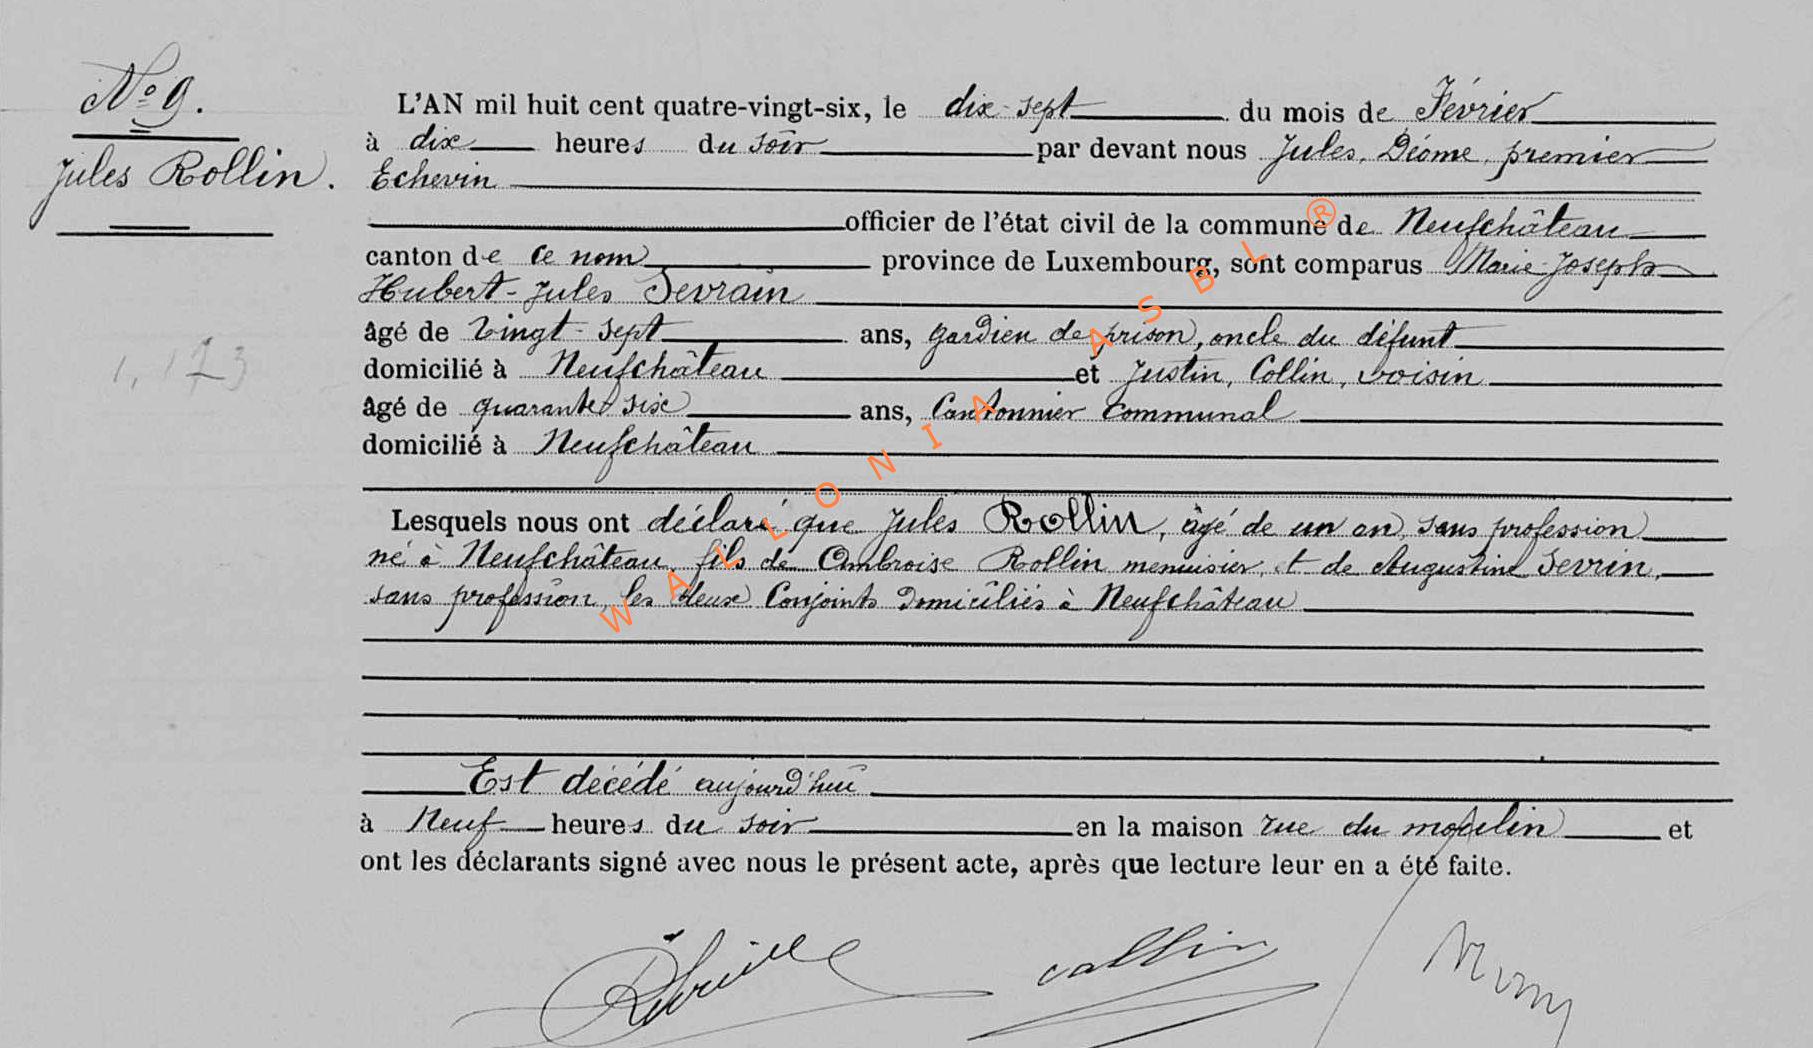 N° 9.
Jules Rollin.
1,173
L'AN mil huit cent quatre-vingt-six, le dix-sept du mois de Février
à dix heures du soir par devant nous Jules, Diome, premier
Echevin
officier de l'état civil de la commune de Neufchâteau
canton de ce nom province de Luxembourg, sont comparus Marie-Joseph
Hubert-Jules Sevrain
âgé de vingt-sept ans, gardien de prison, oncle du défunt
domicilié à Neufchâteau et Justin, Collin, voisin
âgé de quarante six ans, Cantonnier communal
domicilié à Neufchâteau
Lesquels nous ont déclaré que Jules Rollin, âgé de un an, sans profession
né à Neufchâteau, fils de Ambroise Rollin menuisier, et de Augustine Sevrin,
sans profession, les deux Conjoints domiciliés à Neufchâteau
Est décédé aujourd'hui
à Neuf heures du soir en la maison rue du moulin et
ont les déclarants signé avec nous le présent acte, après que lecture leur en a été faite.
collin
WALLONIA ASBL ®